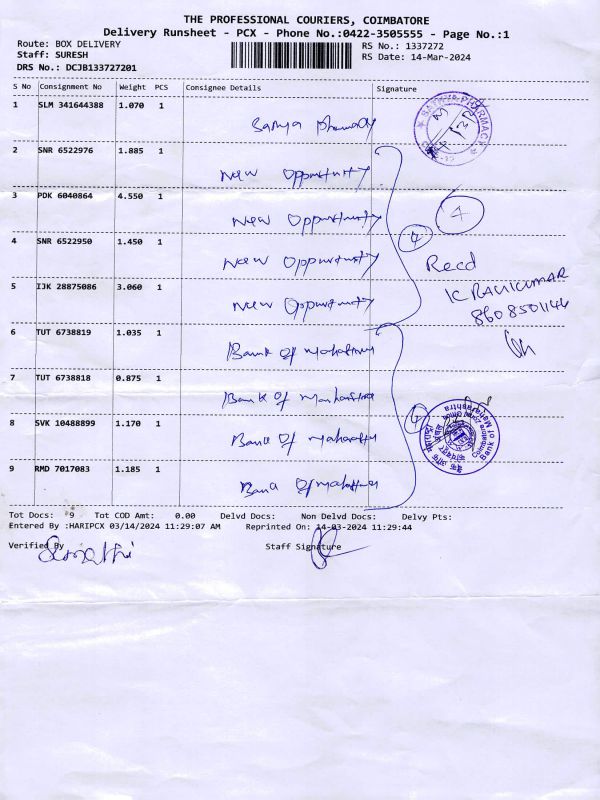 THE PROFESSIONAL COURIERS, COIMBATORE
Delivery Runsheet - PCX - Phone No.:0422-3505555 - Page No.:1
Route: BOX DELIVERY
Staff: SURESH
DRS No.: DCJB133727201
RS No.: 1337272
RS Date: 14-Mar-2024
S No Consignment No Weight PCS Consignee Details Signature
1 SLM 341644388 1.070 1
Satya Pharmacy
2 SNR 6522976 1.885 1
New Opportunity
3 PDK 6040864 4.550 1
New Opportunity
4
4 SNR 6522950 1.450 1
New Opportunity
4
Recd
5 IJK 28875086 3.060 1
New Opportunity
K RAVIKUMAR
8608501144
6 TUT 6738819 1.035 1
Bank Of Maharashtra
7 TUT 6738818 0.875 1
Bank Of Maharashtra
4
8 SVK 10488899 1.170 1
Bank Of Maharashtra
Bank of Maharashtra
9 RMD 7017083 1.185 1
Bank Of Maharashtra
Tot Docs: 9 Tot COD Amt: 0.00 Delvd Docs: Non Delvd Docs: Delvy Pts:
Entered By :HARIPCX 03/14/2024 11:29:07 AM Reprinted On: 14-03-2024 11:29:44
Verified By
Staff Signature